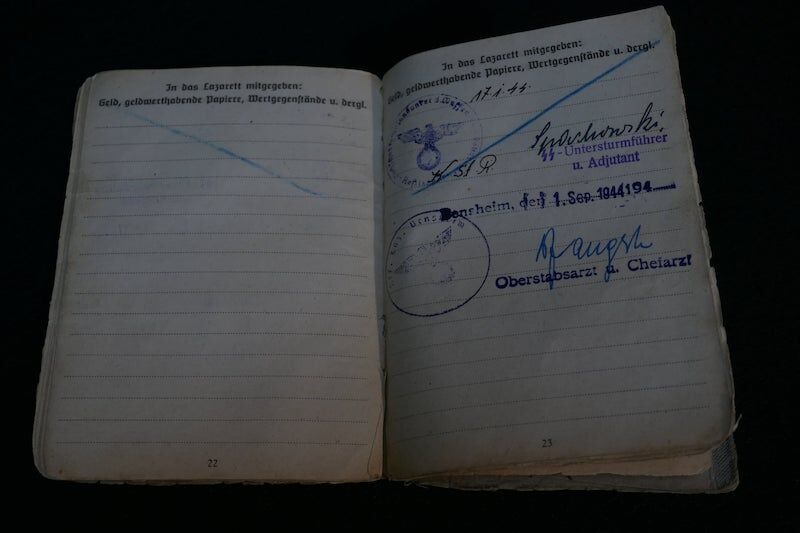 In das Lazarett mitgegeben:
Geld, geldwerthabende Papiere, Wertgegenstände u. dergl.
22
In das Lazarett mitgegeben:
Geld, geldwerthabende Papiere, Wertgegenstände u. dergl.
17.1.44.
SS-Untersturmführer
u. Adjutant
Bensheim, den 1. Sep. 1944 194
Oberstabsarzt u. Chefarzt
23